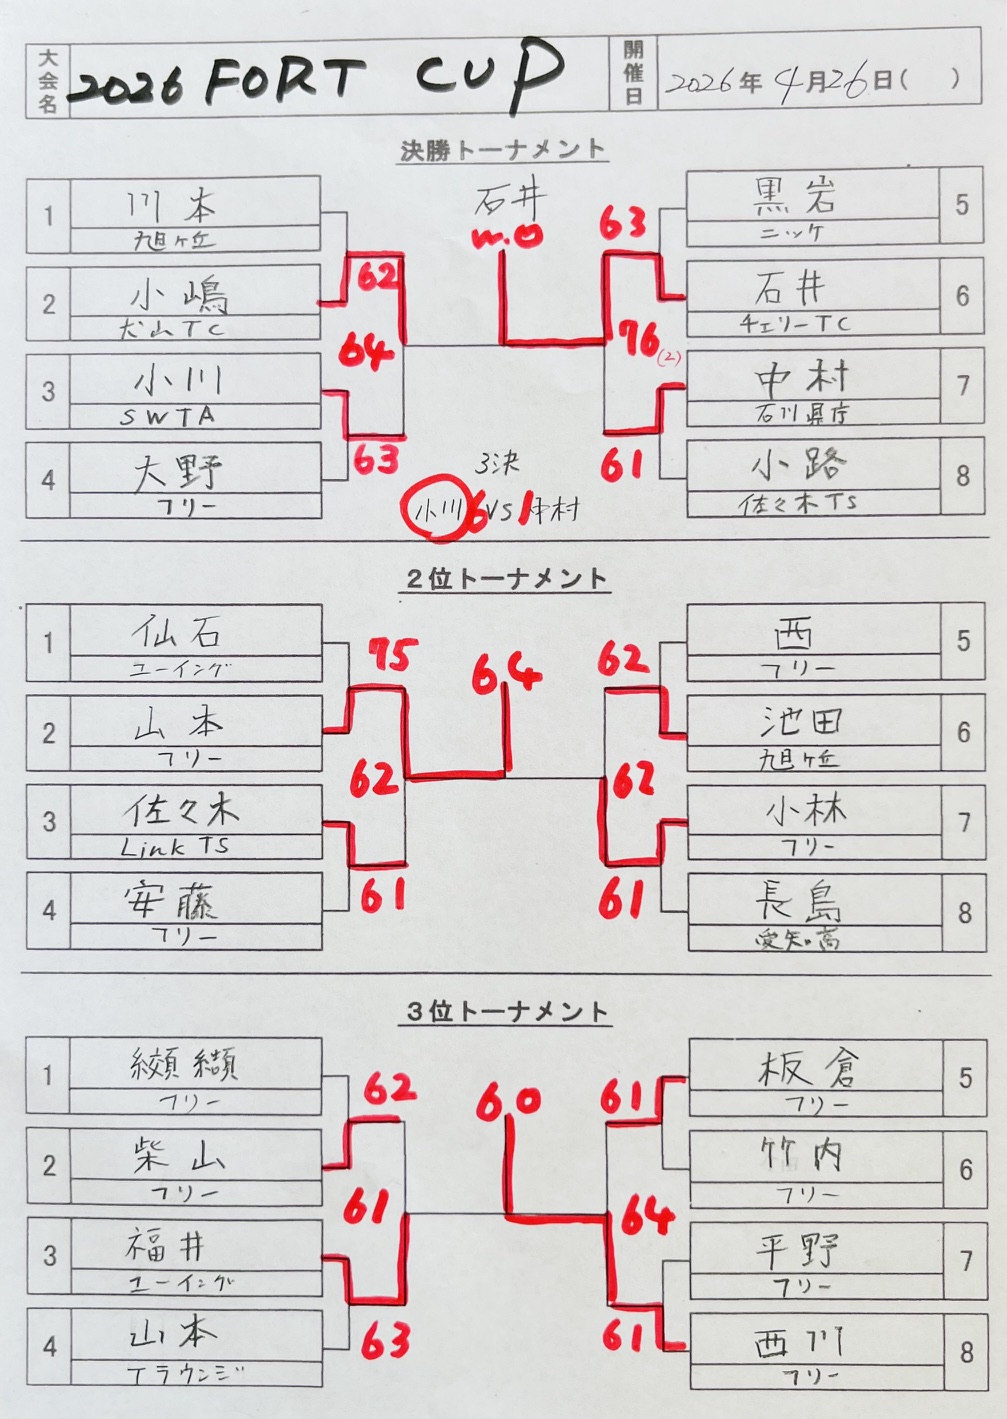 大会名 2026 FORT CUP 開催日 2026年 4月26日( )
決勝トーナメント
1 川本 旭ヶ丘
2 小嶋 犬山TC
3 小川 SWTA
4 大野 フリー
62
64
63
石井
W.O
3決
小川 6 VS 1 中村
63
76(2)
61
黒岩 ニッケ 5
石井 チェリーTC 6
中村 石川県庁 7
小路 佐々木TS 8
2位トーナメント
1 仙石 ユーイング
2 山本 フリー
3 佐々木 Link TS
4 安藤 フリー
75
62
61
64
62
62
61
西 フリー 5
池田 旭ヶ丘 6
小林 フリー 7
長島 愛知高 8
3位トーナメント
1 纐纈 フリー
2 柴山 フリー
3 福井 ユーイング
4 山本 Tラウンジ
62
61
63
60
61
64
61
板倉 フリー 5
竹内 フリー 6
平野 フリー 7
西川 フリー 8